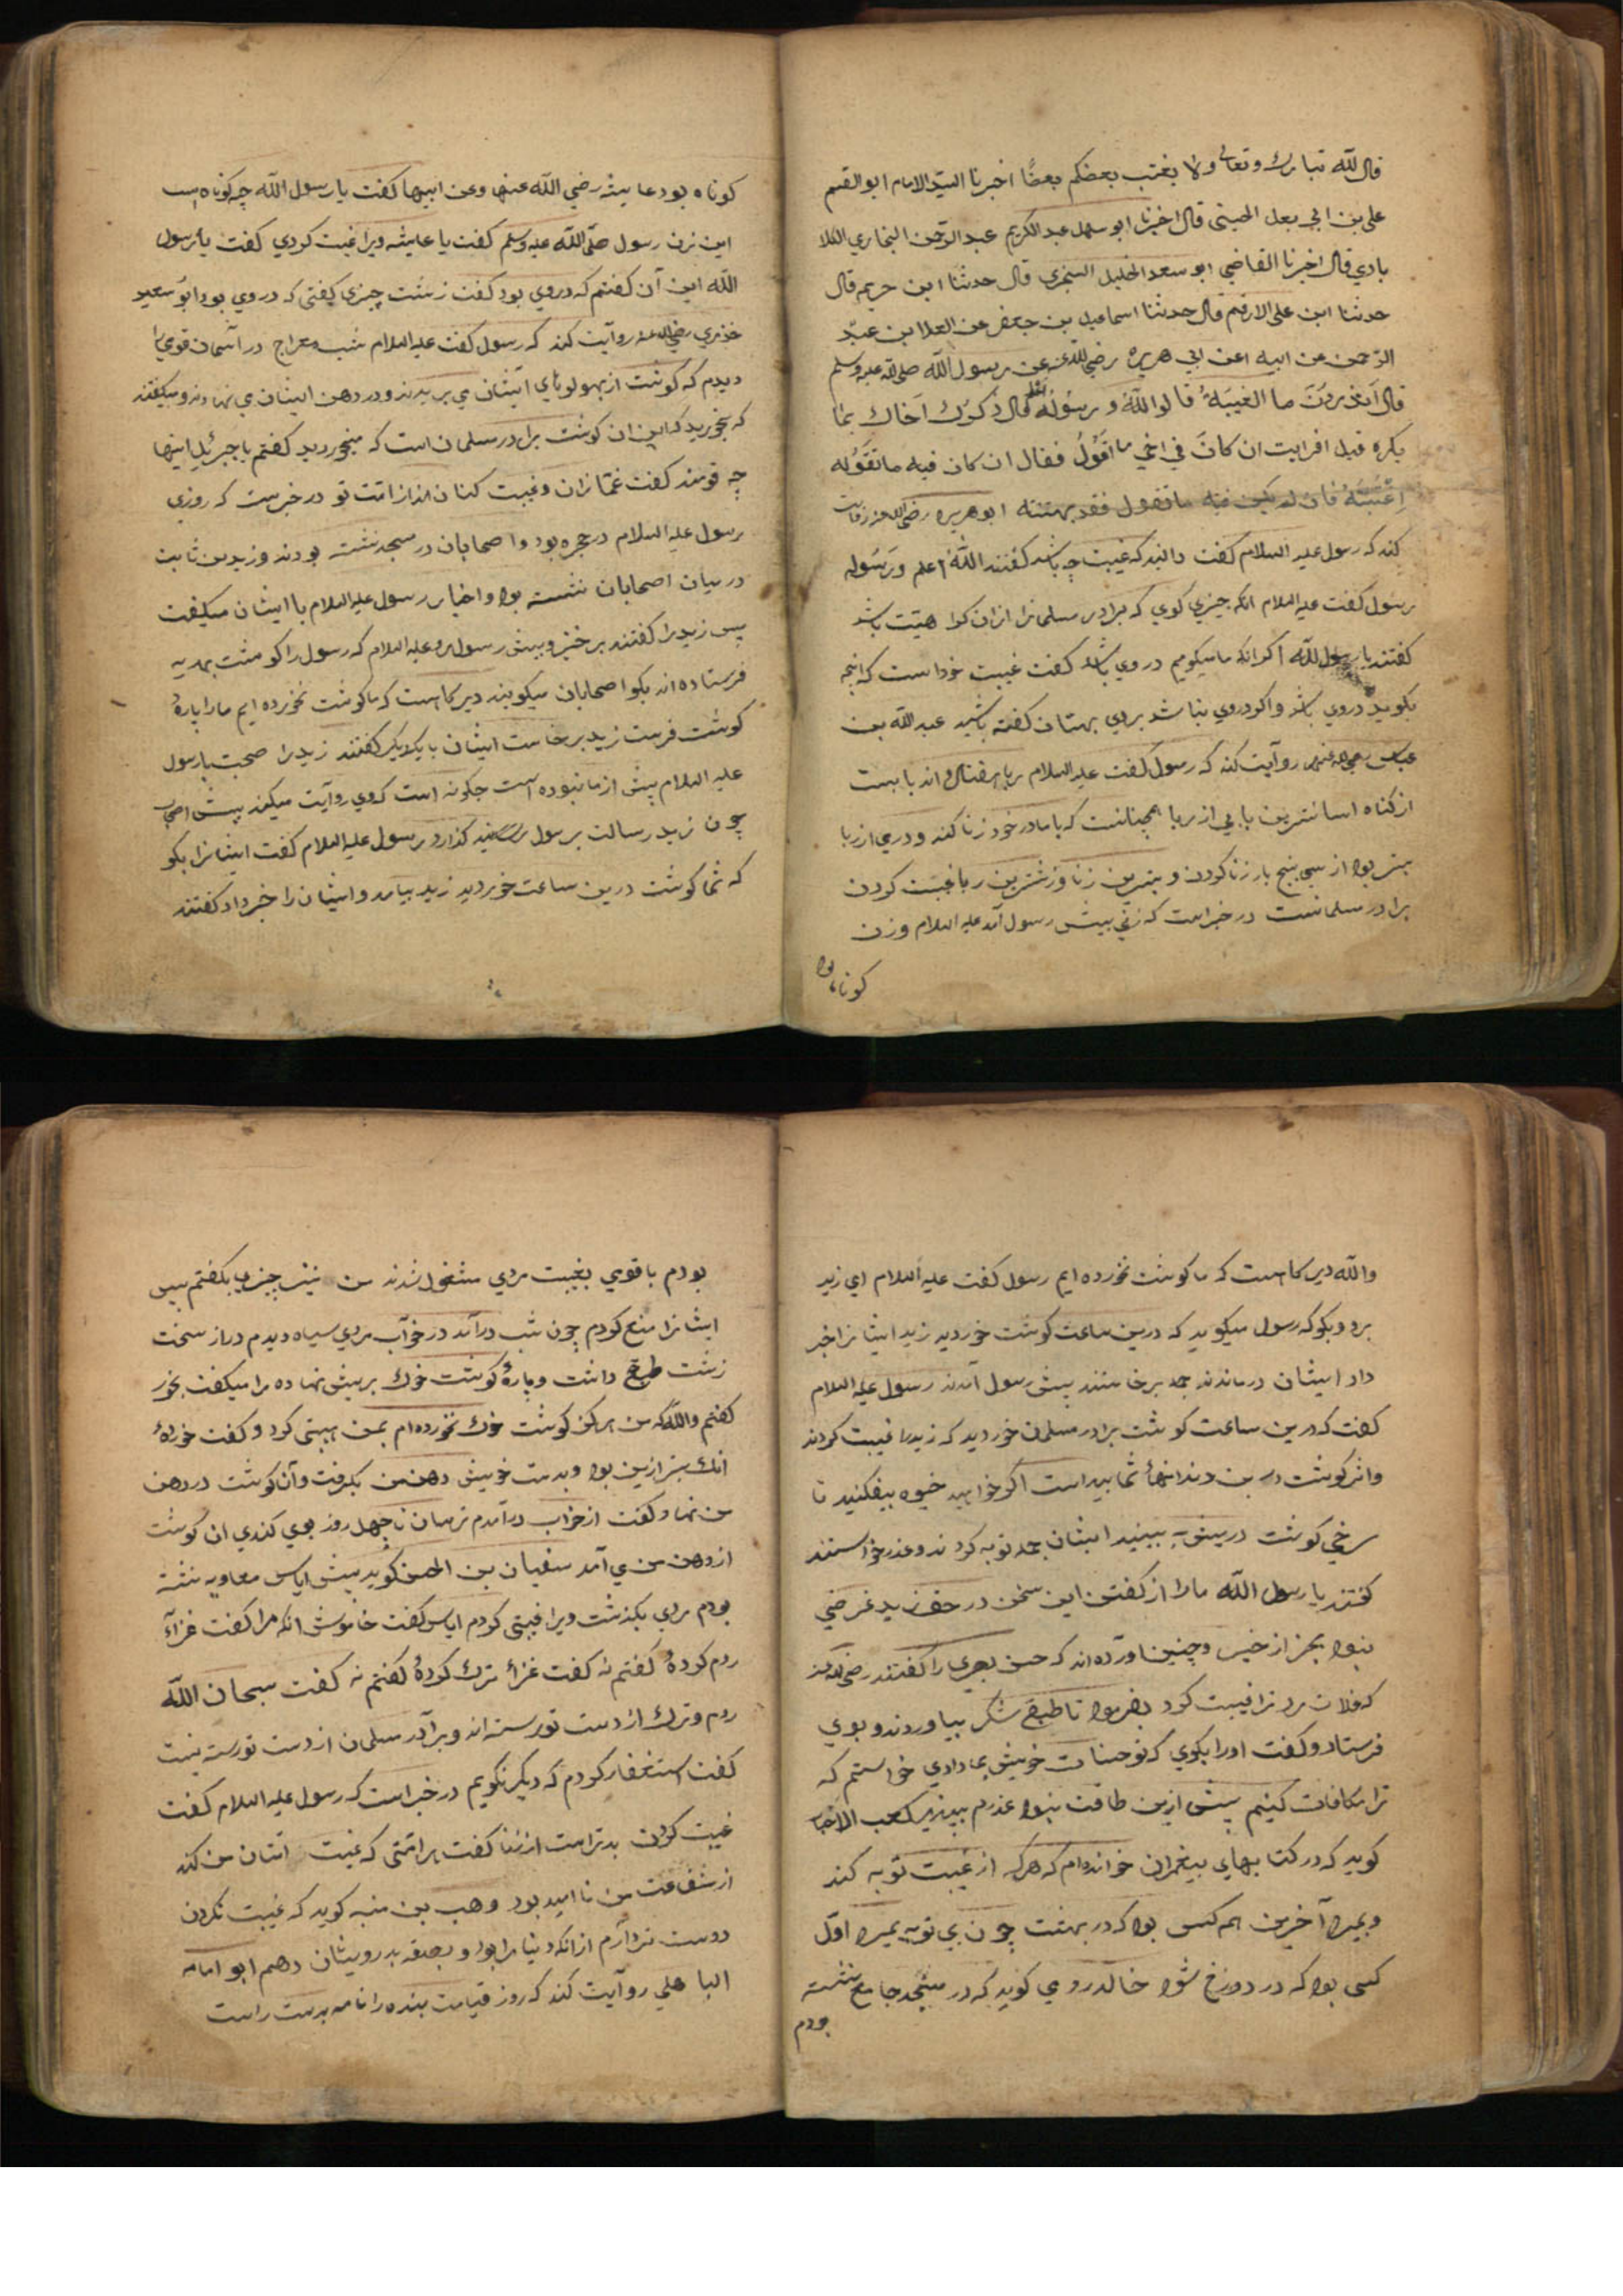 قال الله تبارك وتعالى ولا يغتب بعضكم بعضًا اخبرنا السيد الامام ابو القسم
علي بن ابي يعل الحسيني قال اخبرنا ابو سهل عبد الكريم عبد الرحمن البخاري الكلا
بادي قال اخبرنا القاضي ابو سعد الخليل السنجري قال حدثنا ابن حريم قال
حدثنا ابن علي الارقم قال حدثنا اسماعيل بن جعفر عن العلا بن عبد
الرحمن عن ابيه عن ابي هريره رضي الله عنه عن رسول الله صلى الله عليه وسلم
قال اتدرون ما الغيبة قالوا الله ورسوله اعلم قال ذكرك اخاك بما
يكره قيل افرايت ان كان في اخي ما اقول فقال ان كان فيه ما تقوله
اغتبته فان لم يكن فيه ما تقول فقد بهتته ابو هريره رضي الله عنه روايت
كند كه رسول عليه السلام كفت دانيد كه غيبت چه باشد كفتند الله اعلم ورسوله
رسول كفت عليه السلام انكه چيزي كوي كه برادر مسلمانرا ازان كراهيت باشد
كفتند يا رسول الله اكر انكه ما ميكوييم در وي باشد كفت غيبت خود است كه انچه
بكوييد در وي باشد واكر در وي نباشد بروي بهتان كفته باشيد عبد الله بن
عباس رضي الله عنهما روآيت كند كه رسول كفت عليه السلام ربا هفتاد واند بابست
از كناه اسانترين بابي از ربا همچنانست كه با مادر خود زنا كند ودرمي از ربا
بتر بود از سي پنج بار زنا كردن وبترين زنا وزشترين ربا غيبت كردن
برادر مسلمانست در خبر است كه زني پيش رسول آمد عليه السلام وزن
كوتاه بود
كوتاه بود عايشه رضي الله عنها وعن ابيها كفت يا رسول الله چه كوتاه است
اين زن رسول صلّى الله عليه وسلم كفت يا عايشه ويرا غيبت كردي كفت يا رسول
الله اين آن كفتم كه در وي بود كفت زشت چيزي كفتي كه در وي بود ابو سعيد
خذري رضي الله عنه روآيت كند كه رسول كفت عليه السلام شب معراج در آسمان قومي را
ديدم كه كوشت از پهلوهاي ايشان مي بريدند ودر دهن ايشان مي نهادند وميكفتند
كه بخوريد كه اين ان كوشت برادر مسلمان است كه ميخورديد كفتم يا جبرئيل اينها
چه قومند كفت غمازان وغيبت كنان اند از امت تو در خبرست كه روزي
رسول عليه السلام در حجره بود واصحابان در مسجد نشسته بودند وزيد بن ثابت
در ميان اصحابان نشسته بود واخبار رسول عليه السلام با ايشان ميكفت
پس زيد را كفتند برخيز وپيش رسول رو عليه السلام كه رسول را كوشت بهديه
فرستاده اند بكو اصحابان ميكويند ديركاهست كه ما كوشت نخورده ايم ما را پاره
كوشت فرست زيد برخاست ايشان با يكديكر كفتند زيد را صحبت با رسول
عليه السلام پيش از ما نبوده است چكونه است كه وي روآيت ميكند پيش اصحاب
چون زيد رسالت برسول كذارد رسول عليه السلام كفت ايشانرا بكو
كه شما كوشت درين ساعت خورديد زيد بيامد وايشان را خبر داد كفتند
والله ديركاهست كه ما كوشت نخورده ايم رسول كفت عليه السلام اي زيد
برو وبكو كه رسول ميكويد كه درين ساعت كوشت خورديد زيد ايشانرا خبر
داد ايشان درماندند جمله برخاستند پيش رسول آمدند رسول عليه السلام
كفت كه درين ساعت كوشت برادر مسلمان خورديد كه زيد را غيبت كرديد
واثر كوشت در بن دندانهاء شما پيداست اكر خواهيد خيوه بيفكنيد تا
سرخي كوشت در پيش به بينيد ايشان جمله توبه كردند وعذر خواستند
كفتند يا رسول الله ما را از كفتن اين سخن در حق زيد غرضي
نبود بجز از خيس وچنين آورده اند كه حسن بصري را كفتند رضي الله عنه
كه فلان مرد ترا غيبت كرد بفرمود تا طبقي شكر بياوردند وبوي
فرستاد وكفت اورا بكوي كه تو حسنات خويش بما دادي خواستم كه
ترا مكافات كنيم بيش ازين طاقت نبود عذرم بپذير كعب الاحبار
كويد كه در كتابهاي پيغمبران خوانده ام كه هركه از غيبت توبه كند
وبميرد آخرين همه كس بود كه در بهشت چون بي توبه بميرد اول
كسي بود كه در دوزخ شود خالد روي كويد كه در مسجد جامع نشسته
بودم
بودم با قومي بغيبت مردي مشغول شدند من نيز چيزي بكفتم پس
ايشانرا منع كردم چون شب درآمد در خوآب مردي سياه ديدم دراز سخت
زشت طبقي داشت وپارهٔ كوشت خوك بر پيش نهاده مرا ميكفت بخور
كفتم والله كه من هركز كوشت خوك نخورده ام بمن هيبتي كرد وكفت خوردهٔ
انك بتر ازين بود وبدست خويش دهن من بكرفت وآن كوشت در دهن
من نهاد وكفت از خوآب درآمدم ترسان تا چهل روز بوي كندي ان كوشت
از دهن من مي آمد سفيان بن الحسن كويد پيش اياس معاويه نشسته
بودم مردي بكذشت ويرا غيبتي كردم اياس كفت خاموش انكه مرا كفت غزاء
روم كردهٔ كفتم نه كفت غزاء ترك كردهٔ كفتم نه كفت سبحان الله
روم وترك از دست تو رسته اند وبرآدر مسلمان از دست تو رسته نيست
كفت استغفار كردم كه ديكر نكويم در خبر است كه رسول عليه السلام كفت
غيبت كردن بدتر است از زنا كفت هر امتي كه غيبت امتان من كند
از شفاعت من نا اميد بود وهب بن منبه كويد كه غيبت نكردن
دوستر دآرم ازانكه دنيا مرا بود وبصدقه بدرويشان دهم ابو امامه
الباهلي روآيت كند كه روز قيامت بنده را نامه بدست راست